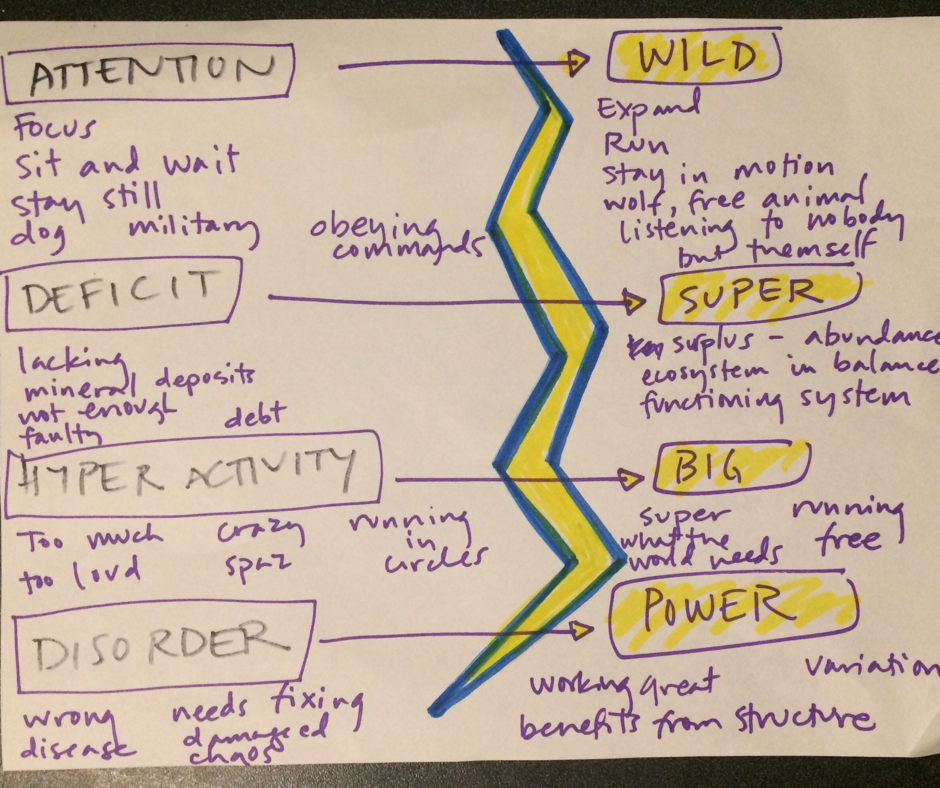 ATTENTION
Focus
Sit and wait
stay still
dog military
obeying
commands
WILD
Expand
Run
stay in motion
wolf, free animal
listening to nobody
but themself
DEFICIT
lacking
mineral deposits
not enough
debt
faulty
SUPER
surplus - abundance
ecosystem in balance
functioning system
HYPERACTIVITY
Too much
too loud
crazy
spaz
running
in
circles
BIG
super
what the
world needs
running
free
DISORDER
wrong
disease
needs fixing
damaged
chaos
POWER
working great
variation
benefits from structure